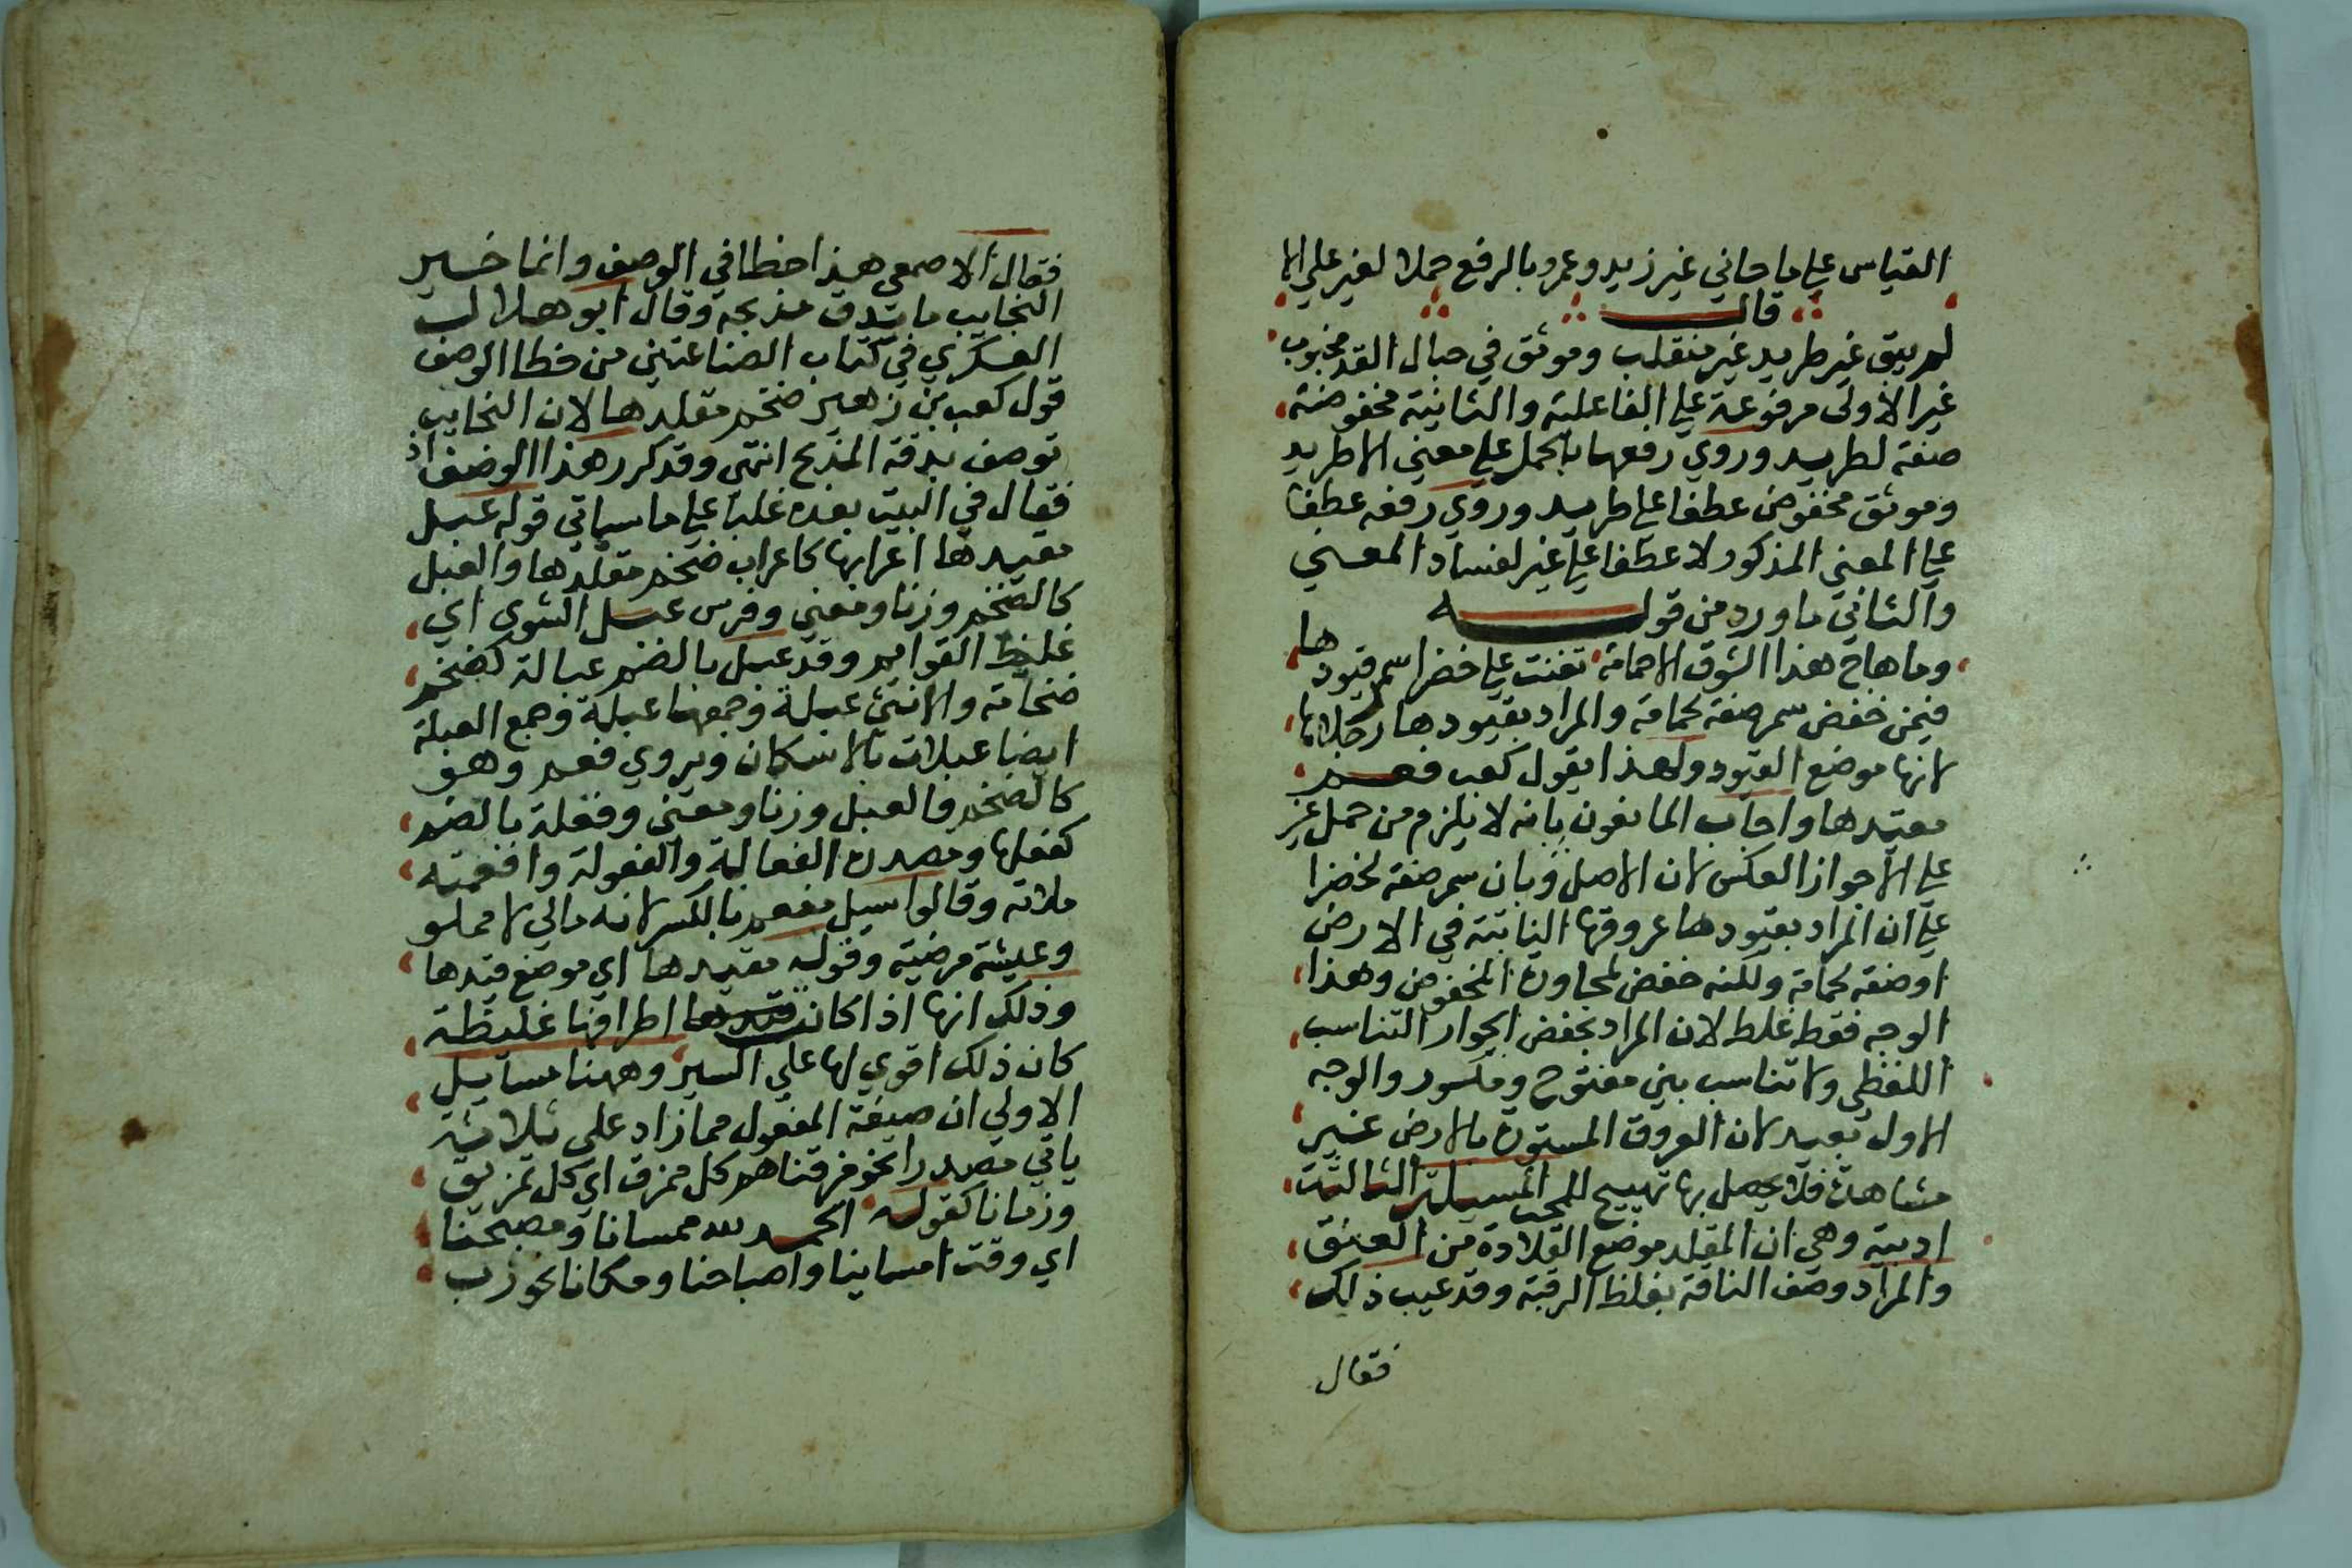 القياس علي ما جاني غير زيد وعمرو بالرفع حملا لغير علي الا
قال
لم يبق غير طريد غير منقلب وموثق في حبال القد مجنوب
غير الاولى مرفوعة علي الفاعلية والثانية مخفوضة
صفة لطريد وروي رفعها بالحمل علي معني الا طريد
وموثق مخفوض عطفا علي طريد وروي رفعه عطفا
علي المعني المذكور لا عطفا علي غير لفساد المعني
والثاني ما ورد من قوله
وما هاج هذا الشوق الا حمامة تغنت علي خضرا سمر قيودها
فيمن خفض سمر صفة لحمامة والمراد بقيودها رجلاها
لانها موضع القيود ولهذا يقول كعب فعم
مقيدها واجاب المانعون بانه لا يلزم من حمل غير
علي الا جواز العكس لان الاصل وبان سمر صفة لخضرا
علي ان المراد بقيودها عروقها النابتة في الارض
او صفة لحمامة ولكنه خفض لمجاورة المخفوض وهذا
الوجه فقط غلط لان المراد بخفض الجوار التناسب
اللفظي ولا تناسب بين مفتوح ومكسور والوجه
الاول بعيد لان العروق المستورة بالارض غير
مشاهدة فلا يحصل بها تهييج للمحب المسيلة الثالثة
ادبية وهي ان المقلد موضع القلادة من العنق
والمراد وصف الناقة بغلظ الرقبة وقد عيب ذلك
فقال
فقال الاصمعي هذا خطا في الوصف وانما خير
النجايب ما يدق مذبحه وقال ابو هلال
العسكري في كتاب الصناعتين من خطا الوصف
قول كعب بن زهير ضخم مقلدها لان النجايب
توصف بدقة المذبح انتهى وقد كرر هذا الوصف اذ
فقال في البيت بعده غلبا علي ما سياتي قوله عبل
مقيدها اعرابها كاعراب ضخم مقلدها والعبل
كالضخم وزنا ومعني وفرس عبل الشوي اي
غليظ القوايم وقد عبل بالضم عبالة كضخم
ضخامة والانثي عبلة وجمعها عبلة وجمع العبلة
ايضا عبلات بالاسكان ويروي فعم وهو
كالضخم والعبل وزنا ومعني وفعله بالضم
كفعلها ومصدره الفعالة والفعولة وافعمته
ملاته وقالوا سيل مفعم بالكسر لانه مالي لا مملو
وعيشة مرضية وقوله مقيدها اي موضع قيدها
وذلك انها اذا كان اطرافها غليظة
كان ذلك اقوي لها علي السير وههنا مسايل
الاولي ان صيغة المفعول مما زاد على ثلاثة
ياتي مصدرا نحو مزقناهم كل ممزق اي كل تمزيق
وزمانا كقوله الحمد لله ممسانا ومصبحنا
اي وقت امساينا واصباحنا ومكانا نحو رب